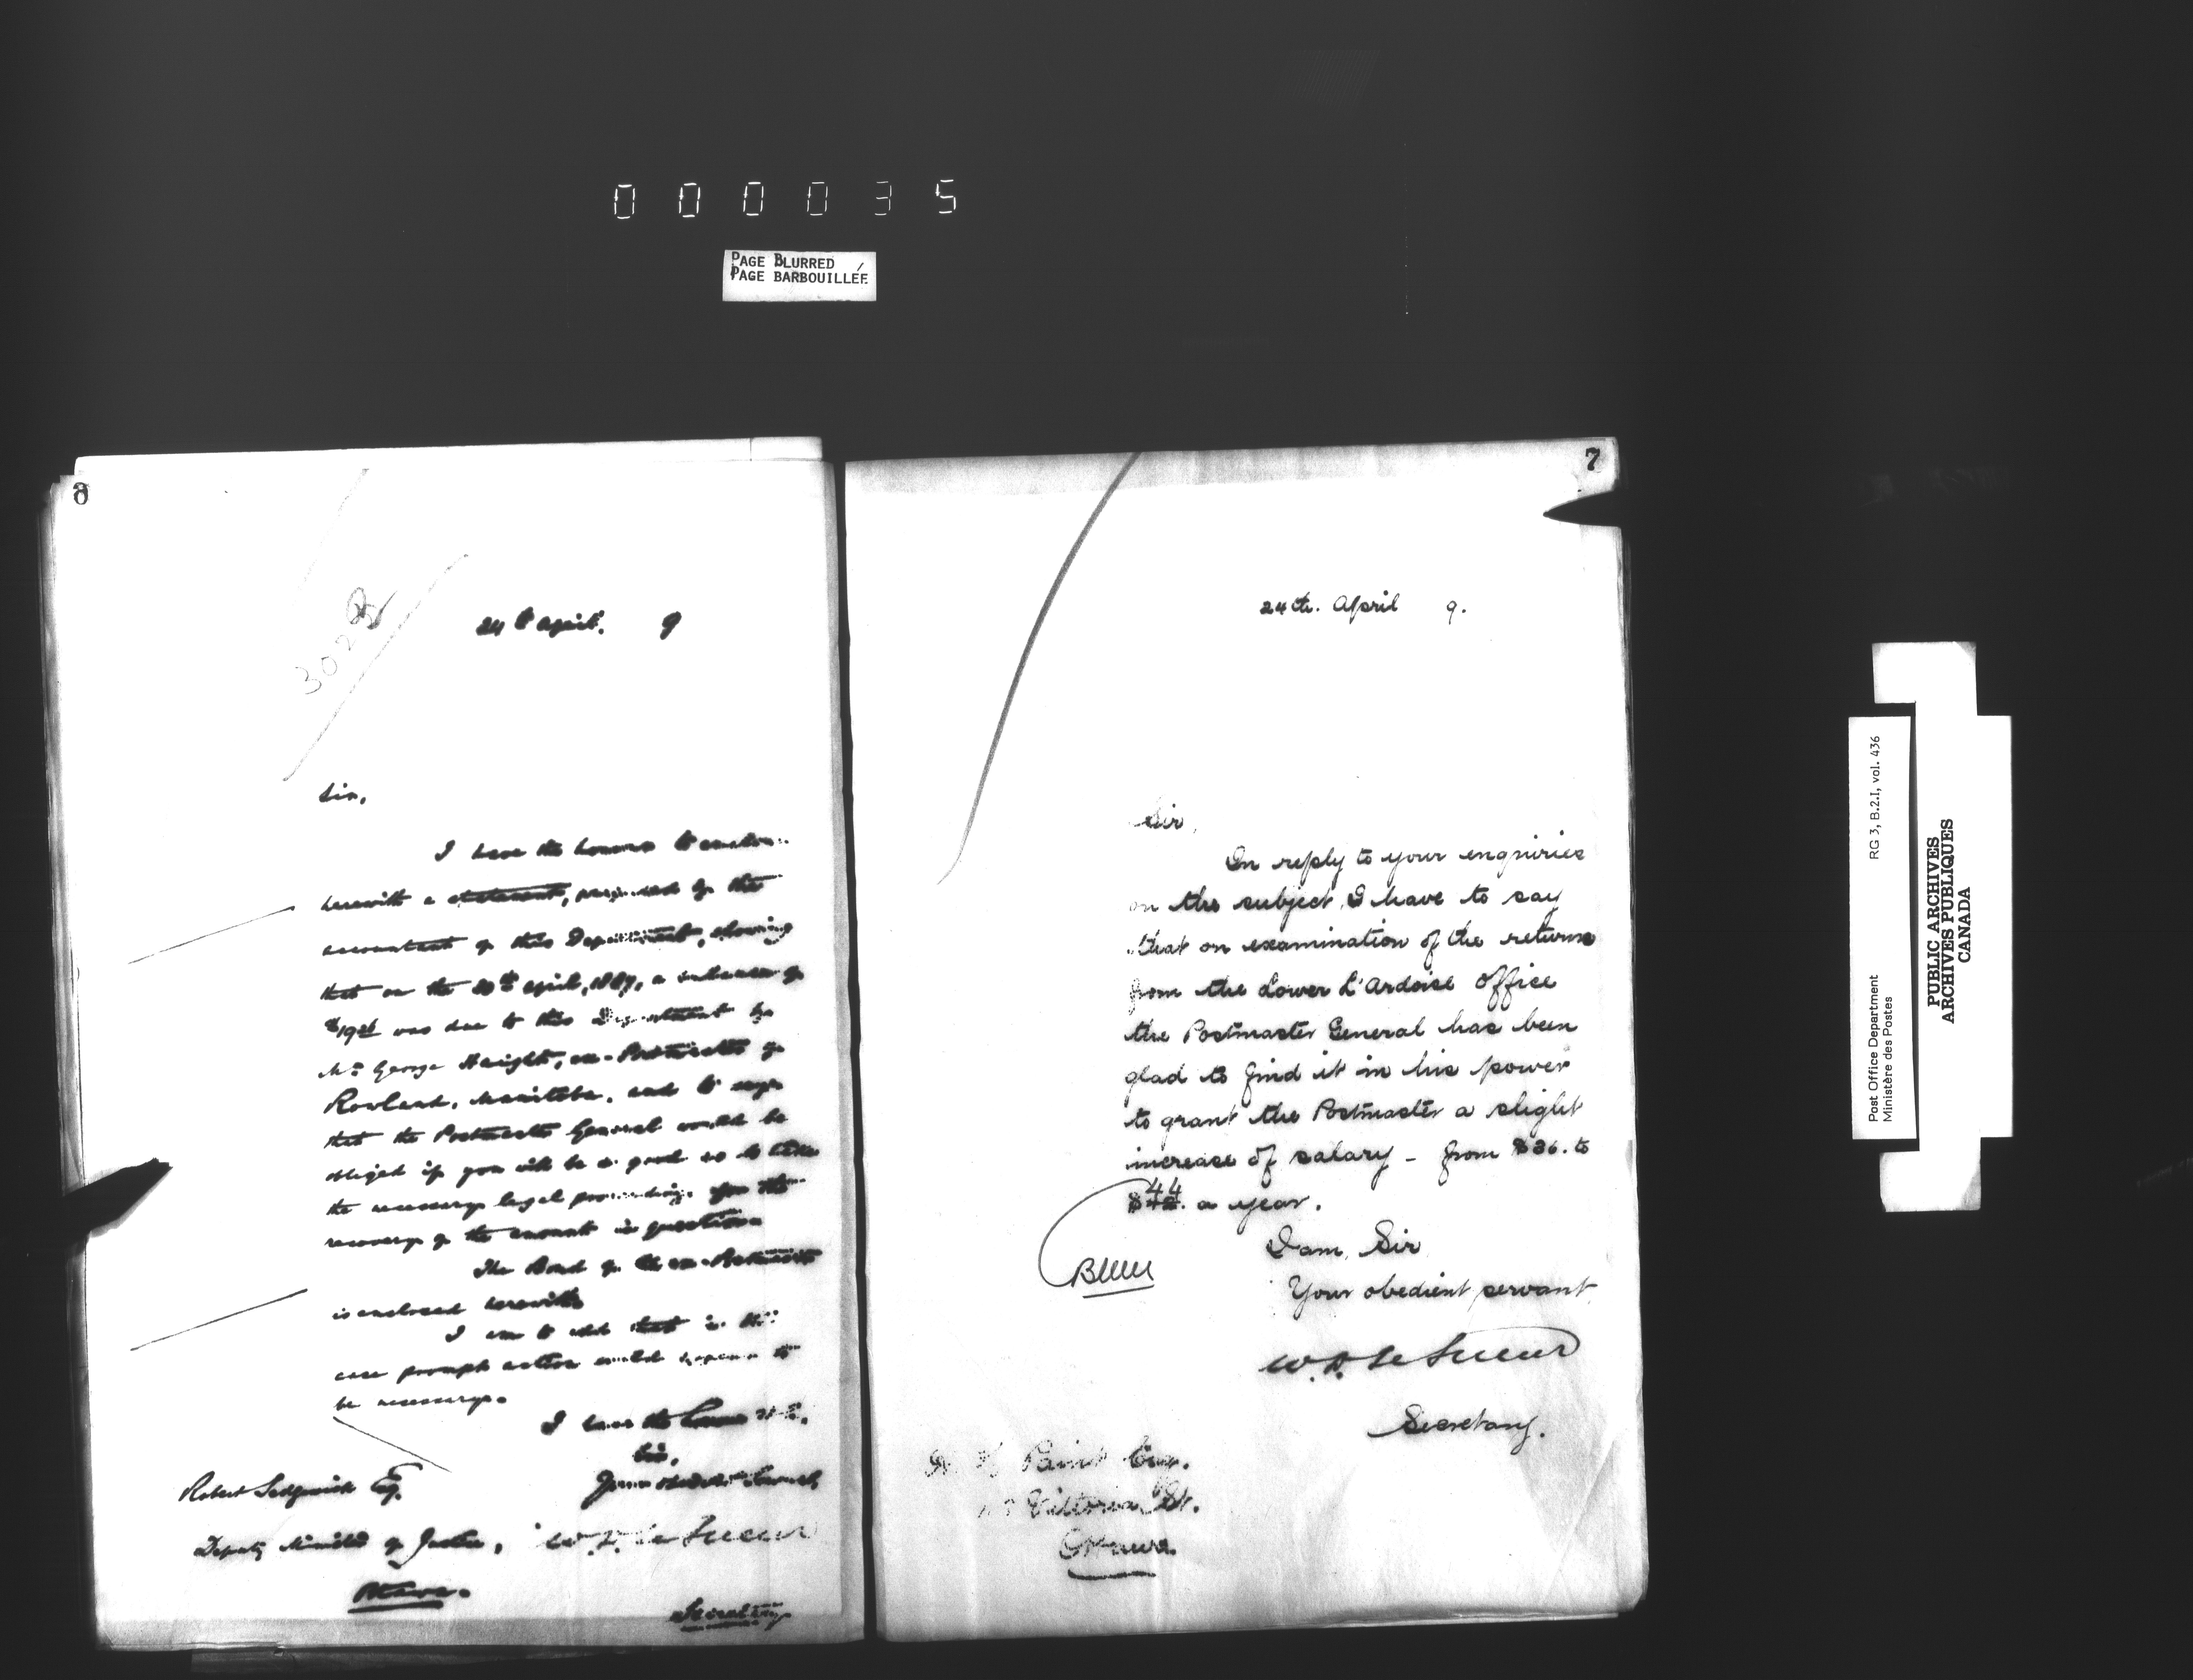 0 0 0 0 3 5
PAGE BLURRED
PAGE BARBOUILLÉE
6
3022
24th April. 9
Sir,
I have the honour to enclose
herewith a statement, prepared by the
accountant of this Department, showing
that on the April, 1887, a balance of
was due to this Department by
Mr George Haight, ex-Postmaster of
Rowland, Manitoba, and to say
that the Postmaster General would be
obliged if you will be so good as to take
the necessary legal proceedings for the
recovery of the amount in question
The Bond of the ex-Postmaster
is enclosed herewith
I am to add that in this
case prompt action would appear to
be necessary.
I have the honour to be,
Sir,
Your obedient Servant,
Robert Sedgewick Esq.
Deputy Minister of Justice,
Ottawa.
W. D. Le Sueur
Secretary
7
24th. April 9.
Sir,
In reply to your enquiries
on the subject, I have to say
that on examination of the returns
from the Lower L'Ardoise Office
the Postmaster General has been
glad to find it in his power
to grant the Postmaster a slight
increase of salary - from $36. to
44
$42. a year.
I am, Sir
Your obedient servant,
W. D. Le Sueur
Secretary.
Paint Esq.
Victoria St.
Ottawa.
Post Office Department RG 3, B.2.I, vol. 436
Ministère des Postes
PUBLIC ARCHIVES
ARCHIVES PUBLIQUES
CANADA